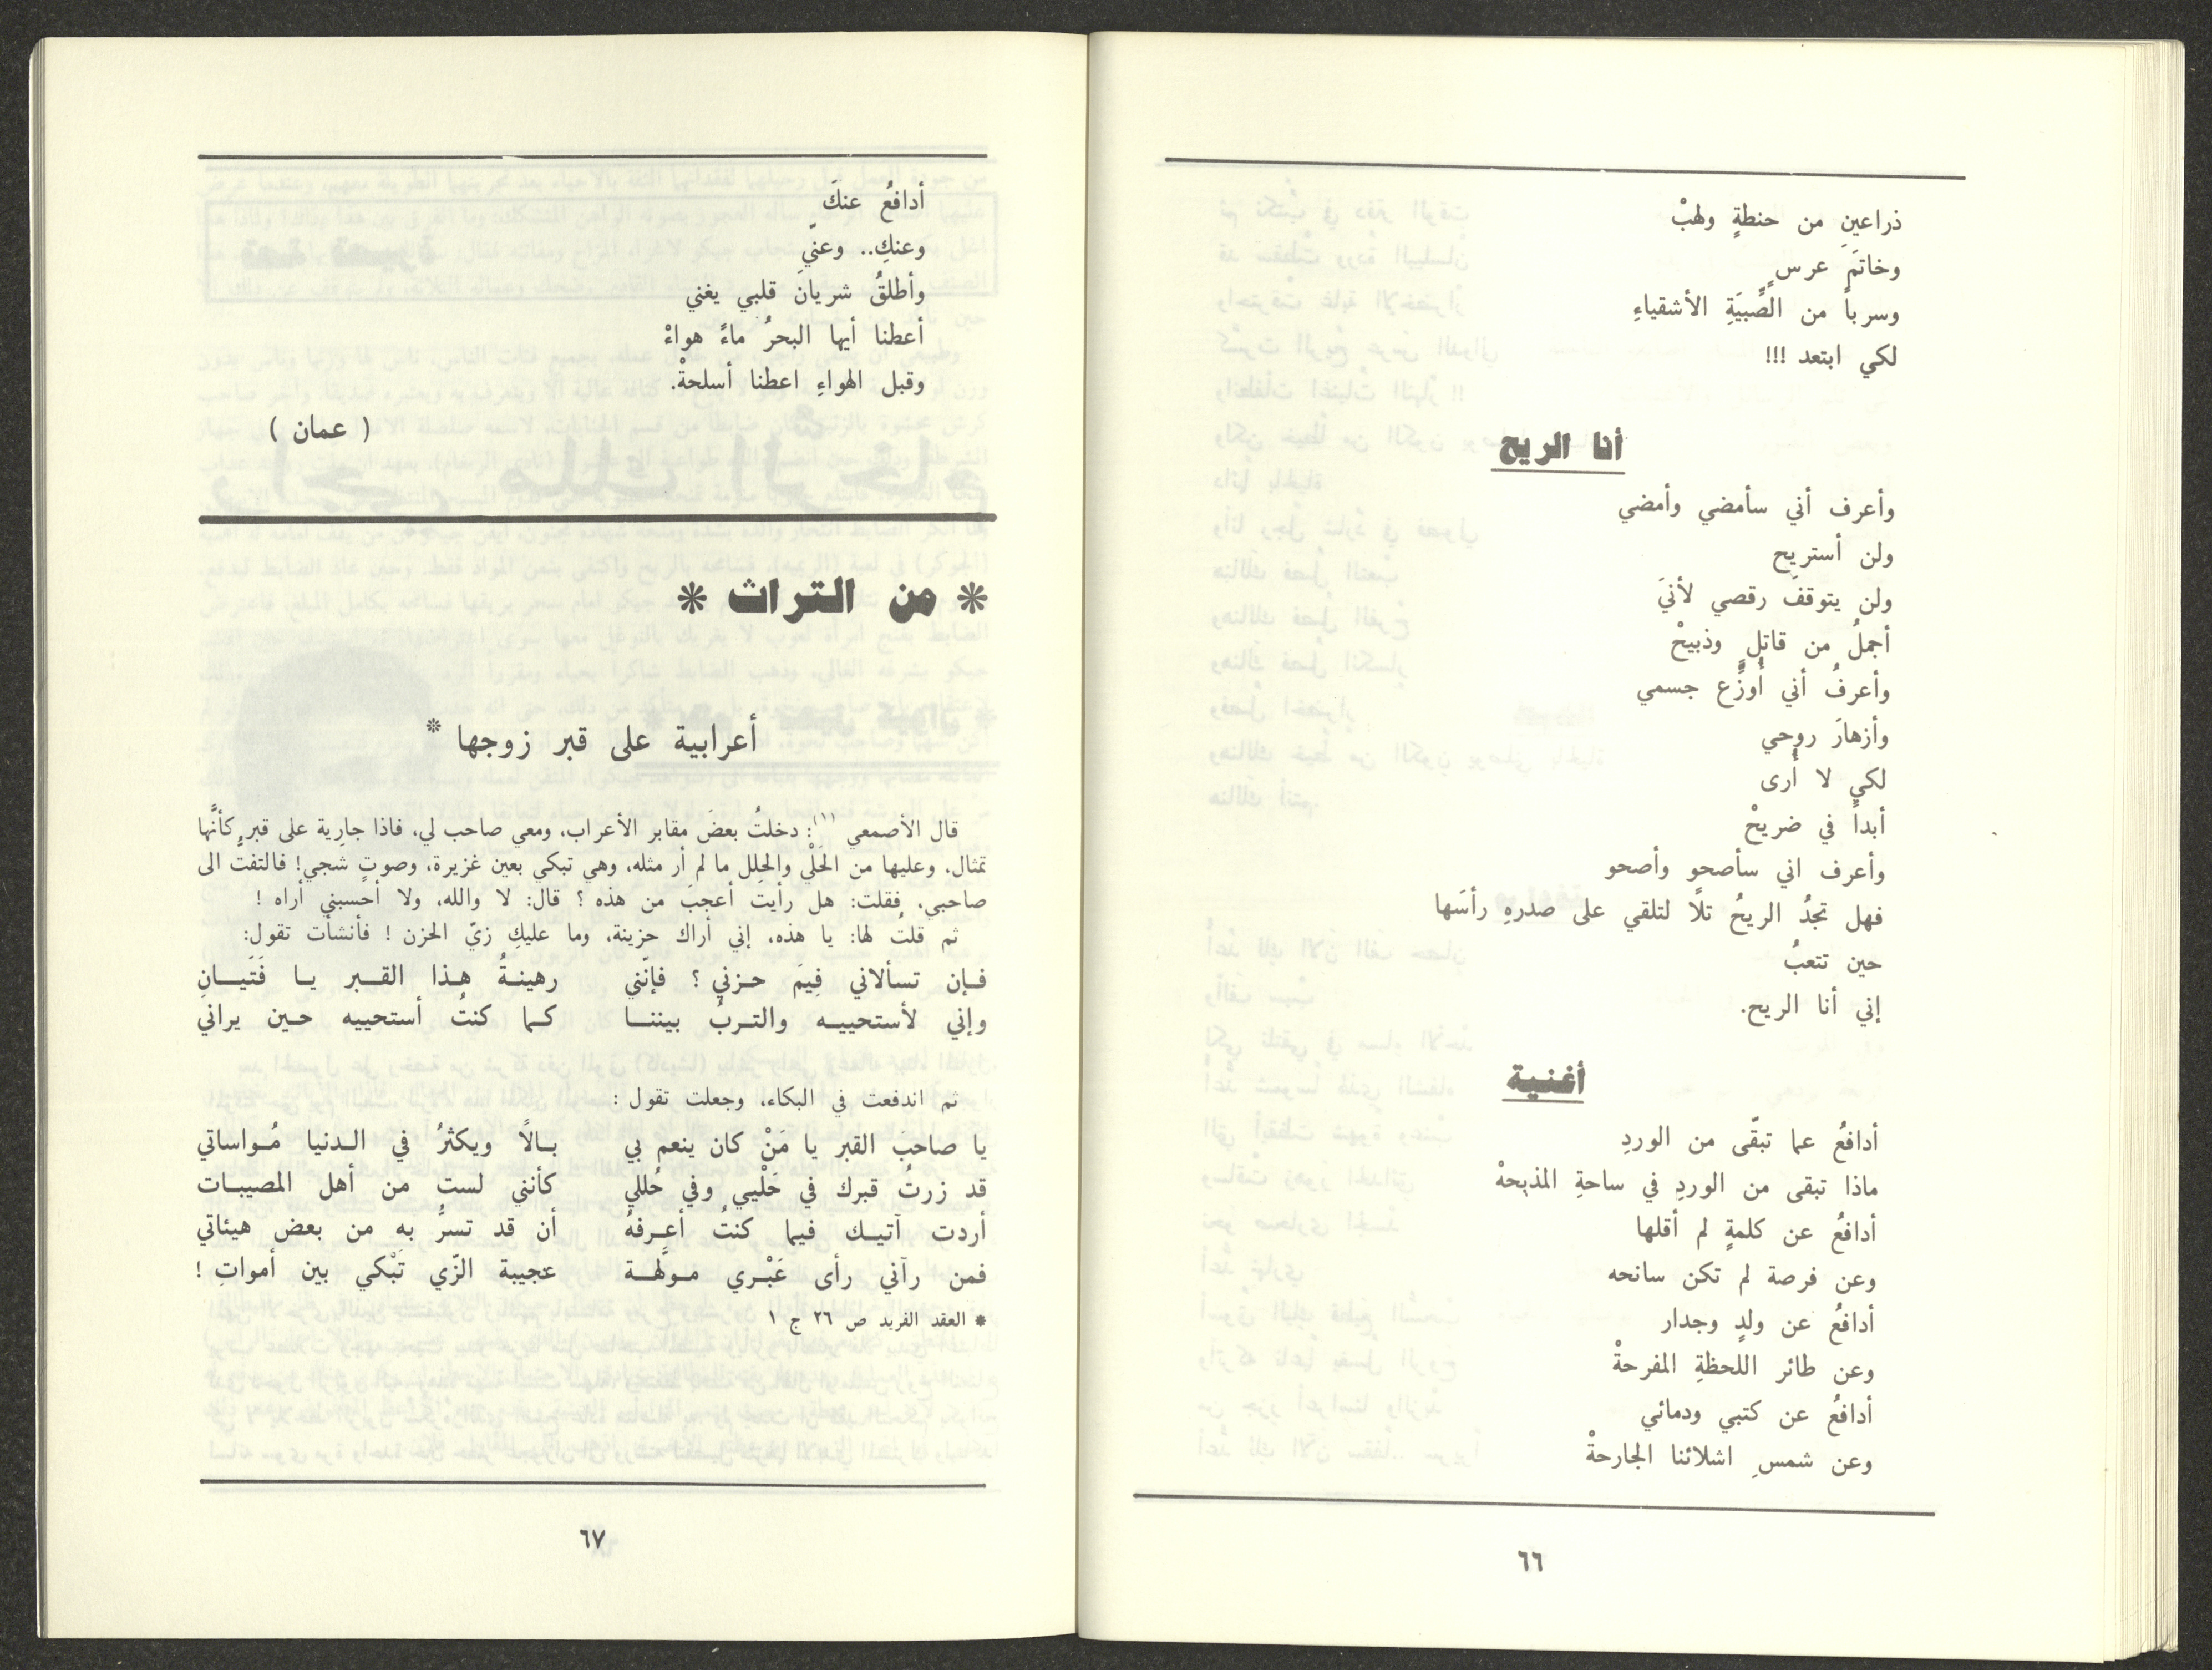 ذراعينِ من حنطةٍ ولهبْ
وخاتمَ عرسٍ
وسرباً من الصِّبيَةِ الأشقياءِ
لكي ابتعد !!!
أنا الريح
وأعرف أني سأمضي وأمضي
ولن أستريح
ولن يتوقفَ رقصي لأنيَ
أجملُ من قاتلٍ وذبيحْ
وأعرفُ أني أُوزِّع جسمي
وأزهارَ روحي
لكي لا أُرى
أبداً في ضريحْ
وأعرف اني سأصحو وأصحو
فهل تجدُ الريحُ تلًا لتلقي على صدرهِ رأسَها
حين تتعبُ
إني أنا الريح.
أغنية
أدافعُ عما تبقّى من الوردِ
ماذا تبقى من الوردِ في ساحةِ المذبحهْ
أدافعُ عن كلمةٍ لم أقلها
وعن فرصة لم تكن سانحه
أدافعُ عن ولدٍ وجدار
وعن طائر اللحظةِ المفرحةْ
أدافعُ عن كتبي ودمائي
وعن شمسِ اشلائنا الجارحةْ
٦٦
أدافعُ عنكَ
وعنكِ.. وعنّي
وأطلقُ شريانَ قلبي يغني
أعطنا أيها البحرُ ماءً هواءْ
وقبل الهواءِ اعطنا أسلحةْ.
( عمان )
* من التراث *
أعرابية على قبر زوجها *
قال الأصمعي (١): دخلتُ بعضَ مقابر الأعراب، ومعي صاحب لي، فاذا جارِية على قبرٍ كأنَّها
تمثال، وعليها من الحَلْي والحِلل ما لم أر مثله، وهي تبكي بعين غزيرة، وصوتٍ شجي! فالتفتُّ الى
صاحبي، فقلت: هل رأيتَ أعجبَ من هذه ؟ قال: لا والله، ولا أحسبني أراه !
ثم قلتُ لها: يا هذه، إني أراك حزينة، وما عليكِ زيّ الحزن ! فأنشأت تقول:
فـإن تسألاني فِيمَ حـزني ؟ فإنّني رهينـةُ هـذا القـبر يـا فَتَيـانِ
وإني لأستحييـه والتـربُ بيننـا كـما كنتُ أستحييه حـين يراني
ثم اندفعت في البكاء، وجعلت تقول :
يا صاحبَ القبر يا مَنْ كان ينعم بي بـالًا ويكثرُ في الـدنيا مُـواساتي
قد زرتُ قبرك في حَلْيي وفي حُللي كأنني لست من أهل المصيبـات
أردت آتيـك فيما كنتُ أعـرفهُ أن قد تسرُّ به من بعض هيئاتي
فمن رآني رأى عَبْـري مـولَّهـة عجيبة الزّي تَبْكي بين أمواتِ !
* العقد الفريد ص ٢٦ ج ١
٦٧